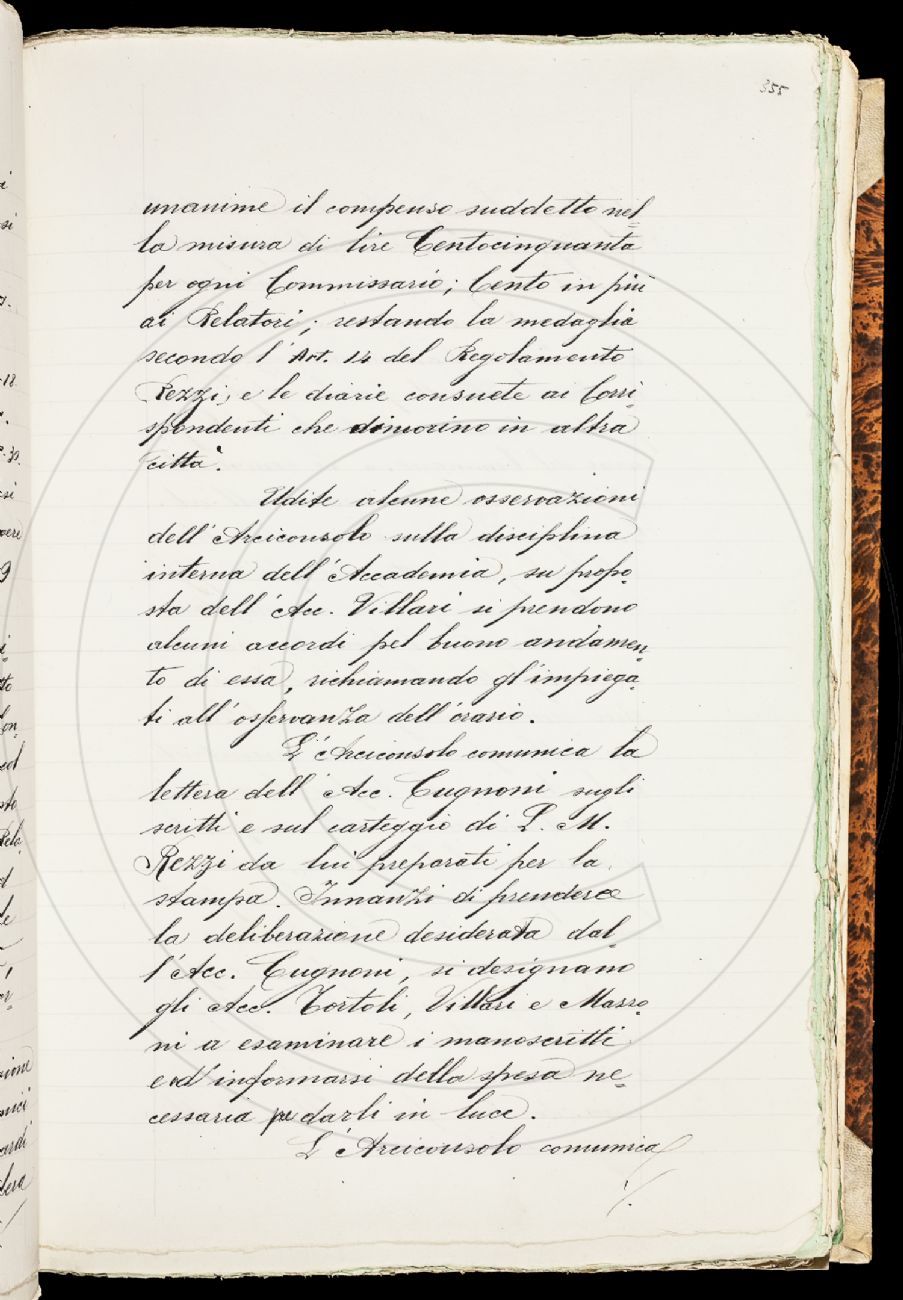 355
unanime il compenso suddetto nel=
la misura di lire Centocinquanta
per ogni Commissario; Cento in più
ai Relatori; restando la medaglia
secondo l'Art. 14 del Regolamento
Rezzi, e le diarie consuete ai Corri-
spondenti che dimorino in altra
città.
Udite alcune osservazioni
dell'Arciconsolo sulla disciplina
interna dell'Accademia, su propo-
sta dell'Acc. Villari si prendono
alcuni accordi pel buono andamen-
to di essa, richiamando gl'impiega-
ti all'osservanza dell'orario.
L'Arciconsolo comunica la
lettera dell'Acc. Cugnoni sugli
scritti e sul carteggio di L. M.
Rezzi da lui preparati per la
stampa. Innanzi di prendere
la deliberazione desiderata dal-
l'Acc. Cugnoni, si designano
gli Acc. Tortoli, Villari e Mazzo-
ni a esaminare i manoscritti
ed informarsi della spesa ne-
cessaria per darli in luce.
L'Arciconsolo comunica